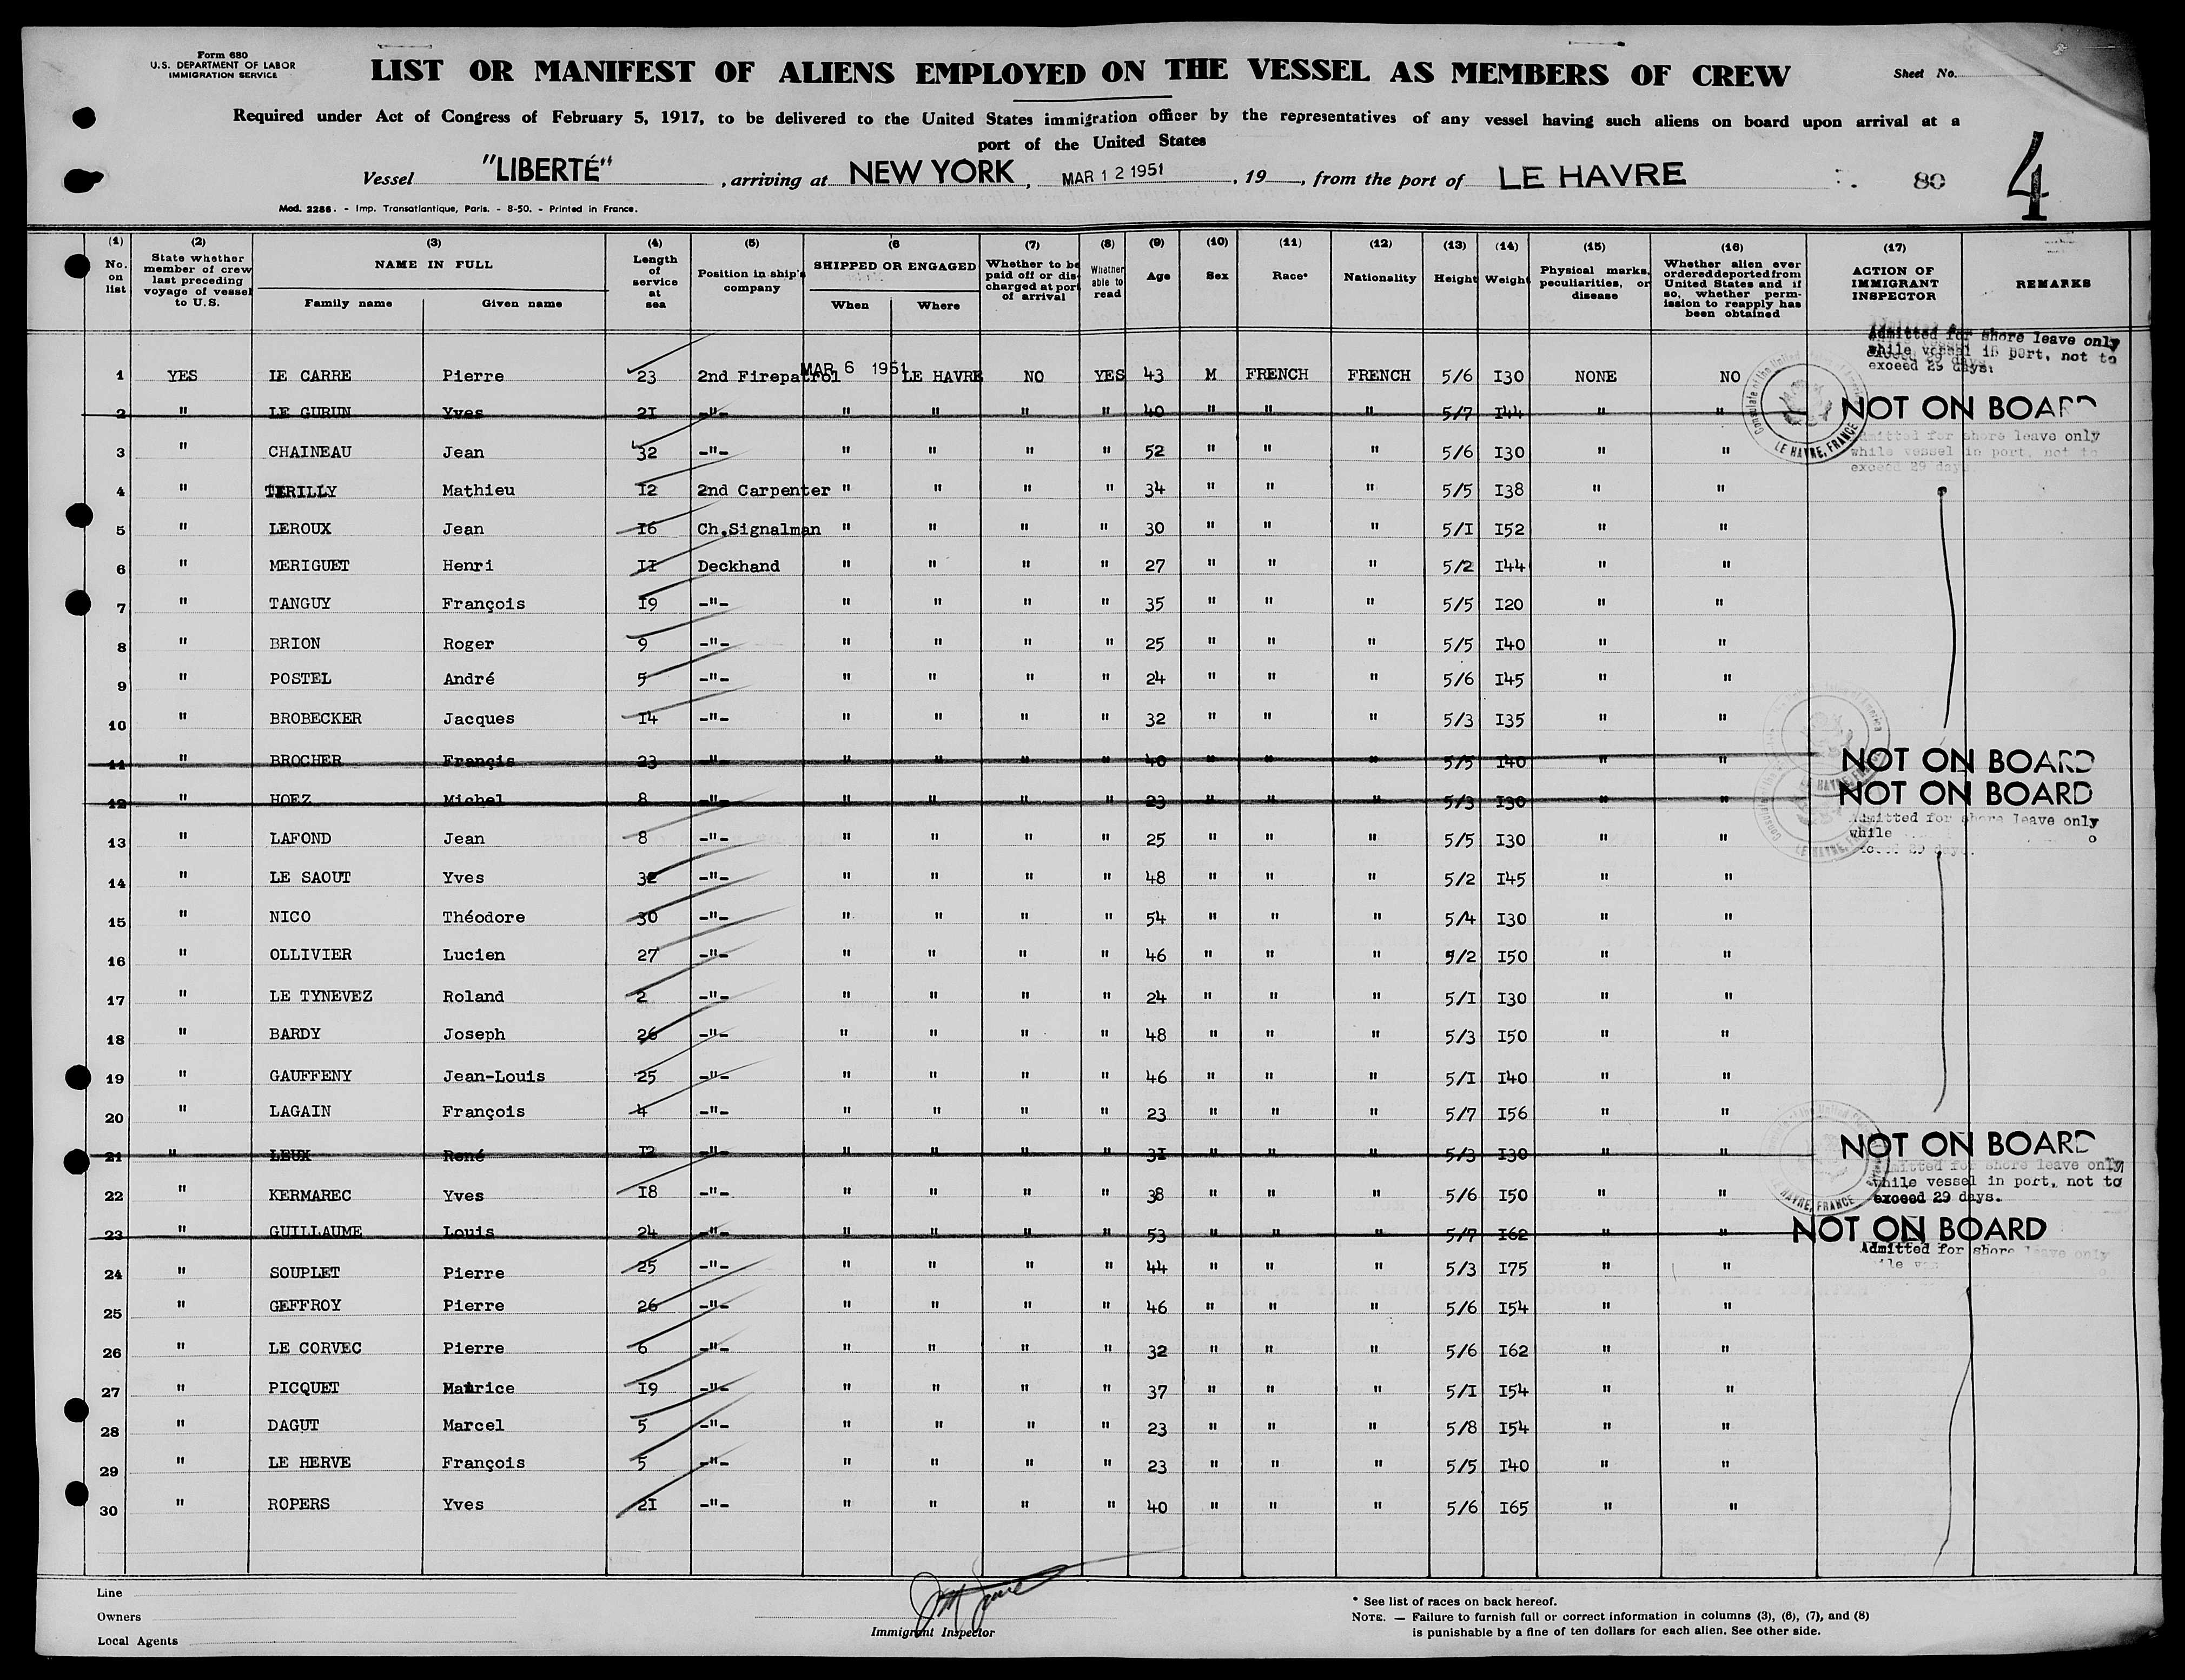 Form 680
U.S. DEPARTMENT OF LABOR
IMMIGRATION SERVICE
LIST OR MANIFEST OF ALIENS EMPLOYED ON THE VESSEL AS MEMBERS OF CREW
Sheet No.
Required under Act of Congress of February 5, 1917, to be delivered to the United States immigration officer by the representatives of any vessel having such aliens on board upon arrival at a
port of the United States
Vessel "LIBERTÉ", arriving at NEW YORK, MAR 12 1951, 19, from the port of LE HAVRE 80 4
Mod. 2286. - Imp. Transatlantique, Paris. - 8-50. - Printed in France.
(1) (2) (3) (4) (5) (6 (7) (8) (9) (10) (11) (12) (13) (14) (15) (16) (17)
No. on list
State whether member of crew last preceding voyage of vessel to U.S.
NAME IN FULL
Family name Given name
Length of service at sea
Position in ship's company
SHIPPED OR ENGAGED
When Where
Whether to be paid off or discharged at port of arrival
Whether able to read
Age
Sex
Race*
Nationality
Height
Weight
Physical marks, peculiarities, or disease
Whether alien ever ordered deported from United States and if so, whether permission to reapply has been obtained
ACTION OF IMMIGRANT INSPECTOR
REMARKS
Admitted for shore leave only
while vessel in port, not to
exceed 29 days.
1 YES LE CARRE Pierre 23 2nd Firepatrol MAR 6 1951 LE HAVRE NO YES 43 M FRENCH FRENCH 5/6 I30 NONE NO
2 " LE GURUN Yves 2I -"- " " " " 40 " " " 5/7 I44 " " NOT ON BOARD
Admitted for shore leave only
while vessel in port, not to
exceed 29 days
3 " CHAINEAU Jean 32 -"- " " " " 52 " " " 5/6 I30 " "
4 " TIRILLY Mathieu I2 2nd Carpenter " " " " 34 " " " 5/5 I38 " "
5 " LEROUX Jean I6 Ch.Signalman " " " " 30 " " " 5/I I52 " "
6 " MERIGUET Henri II Deckhand " " " " 27 " " " 5/2 I44 " "
7 " TANGUY François I9 -"- " " " " 35 " " " 5/5 I20 " "
8 " BRION Roger 9 -"- " " " " 25 " " " 5/5 I40 " "
9 " POSTEL André 5 -"- " " " " 24 " " " 5/6 I45 " "
10 " BROBECKER Jacques I4 -"- " " " " 32 " " " 5/3 I35 " "
11 " BROCHER Françis 23 -"- " " " " 40 " " " 5/5 I40 " " NOT ON BOARD
12 " HOEZ Michel 8 -"- " " " " 23 " " " 5/3 I30 " " NOT ON BOARD
Admitted for shore leave only
while
13 " LAFOND Jean 8 -"- " " " " 25 " " " 5/5 I30 " "
14 " LE SAOUT Yves 32 -"- " " " " 48 " " " 5/2 I45 " "
15 " NICO Théodore 30 -"- " " " " 54 " " " 5/4 I30 " "
16 " OLLIVIER Lucien 27 -"- " " " " 46 " " " 5/2 I50 " "
17 " LE TYNEVEZ Roland 2 -"- " " " " 24 " " " 5/I I30 " "
18 " BARDY Joseph 26 -"- " " " " 48 " " " 5/3 I50 " "
19 " GAUFFENY Jean-Louis 25 -"- " " " " 46 " " " 5/I I40 " "
20 " LAGAIN François 4 -"- " " " " 23 " " " 5/7 I56 " "
21 " LEUX René I2 -"- " " " " 3I " " " 5/3 I30 " " NOT ON BOARD
Admitted for shore leave only
while vessel in port, not to
exceed 29 days.
22 " KERMAREC Yves I8 -"- " " " " 38 " " " 5/6 I50 " "
23 " GUILLAUME Louis 24 -"- " " " " 53 " " " 5/7 I62 " " NOT ON BOARD
Admitted for shore leave only
24 " SOUPLET Pierre 25 -"- " " " " 44 " " " 5/3 I75 " "
25 " GEFFROY Pierre 26 -"- " " " " 46 " " " 5/6 I54 " "
26 " LE CORVEC Pierre 6 -"- " " " " 32 " " " 5/6 I62 " "
27 " PICQUET Maurice I9 -"- " " " " 37 " " " 5/I I54 " "
28 " DAGUT Marcel 5 -"- " " " " 23 " " " 5/8 I54 " "
29 " LE HERVE François 5 -"- " " " " 23 " " " 5/5 I40 " "
30 " ROPERS Yves 2I -"- " " " " 40 " " " 5/6 I65 " "
LE HAVRE, FRANCE
Line
Owners
Local Agents
Immigrant Inspector
* See list of races on back hereof.
NOTE. — Failure to furnish full or correct information in columns (3), (6), (7), and (8)
is punishable by a fine of ten dollars for each alien. See other side.